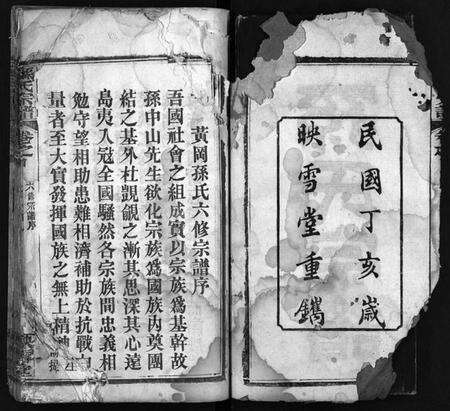 民國丁亥歲
映雪堂重鐫
黃岡孫氏六修宗譜序
吾國社會之組成實以宗族爲基幹故
孫中山先生欲化宗族爲國族內奠團
結之基外杜覬覦之漸其思深其心遠
島夷入寇全國騷然各宗族間忠義相
勉守望相助患難相濟補助於抗戰
量者至大實發揮國族之無上精神
氏宗譜
卷之
六修宗譜序